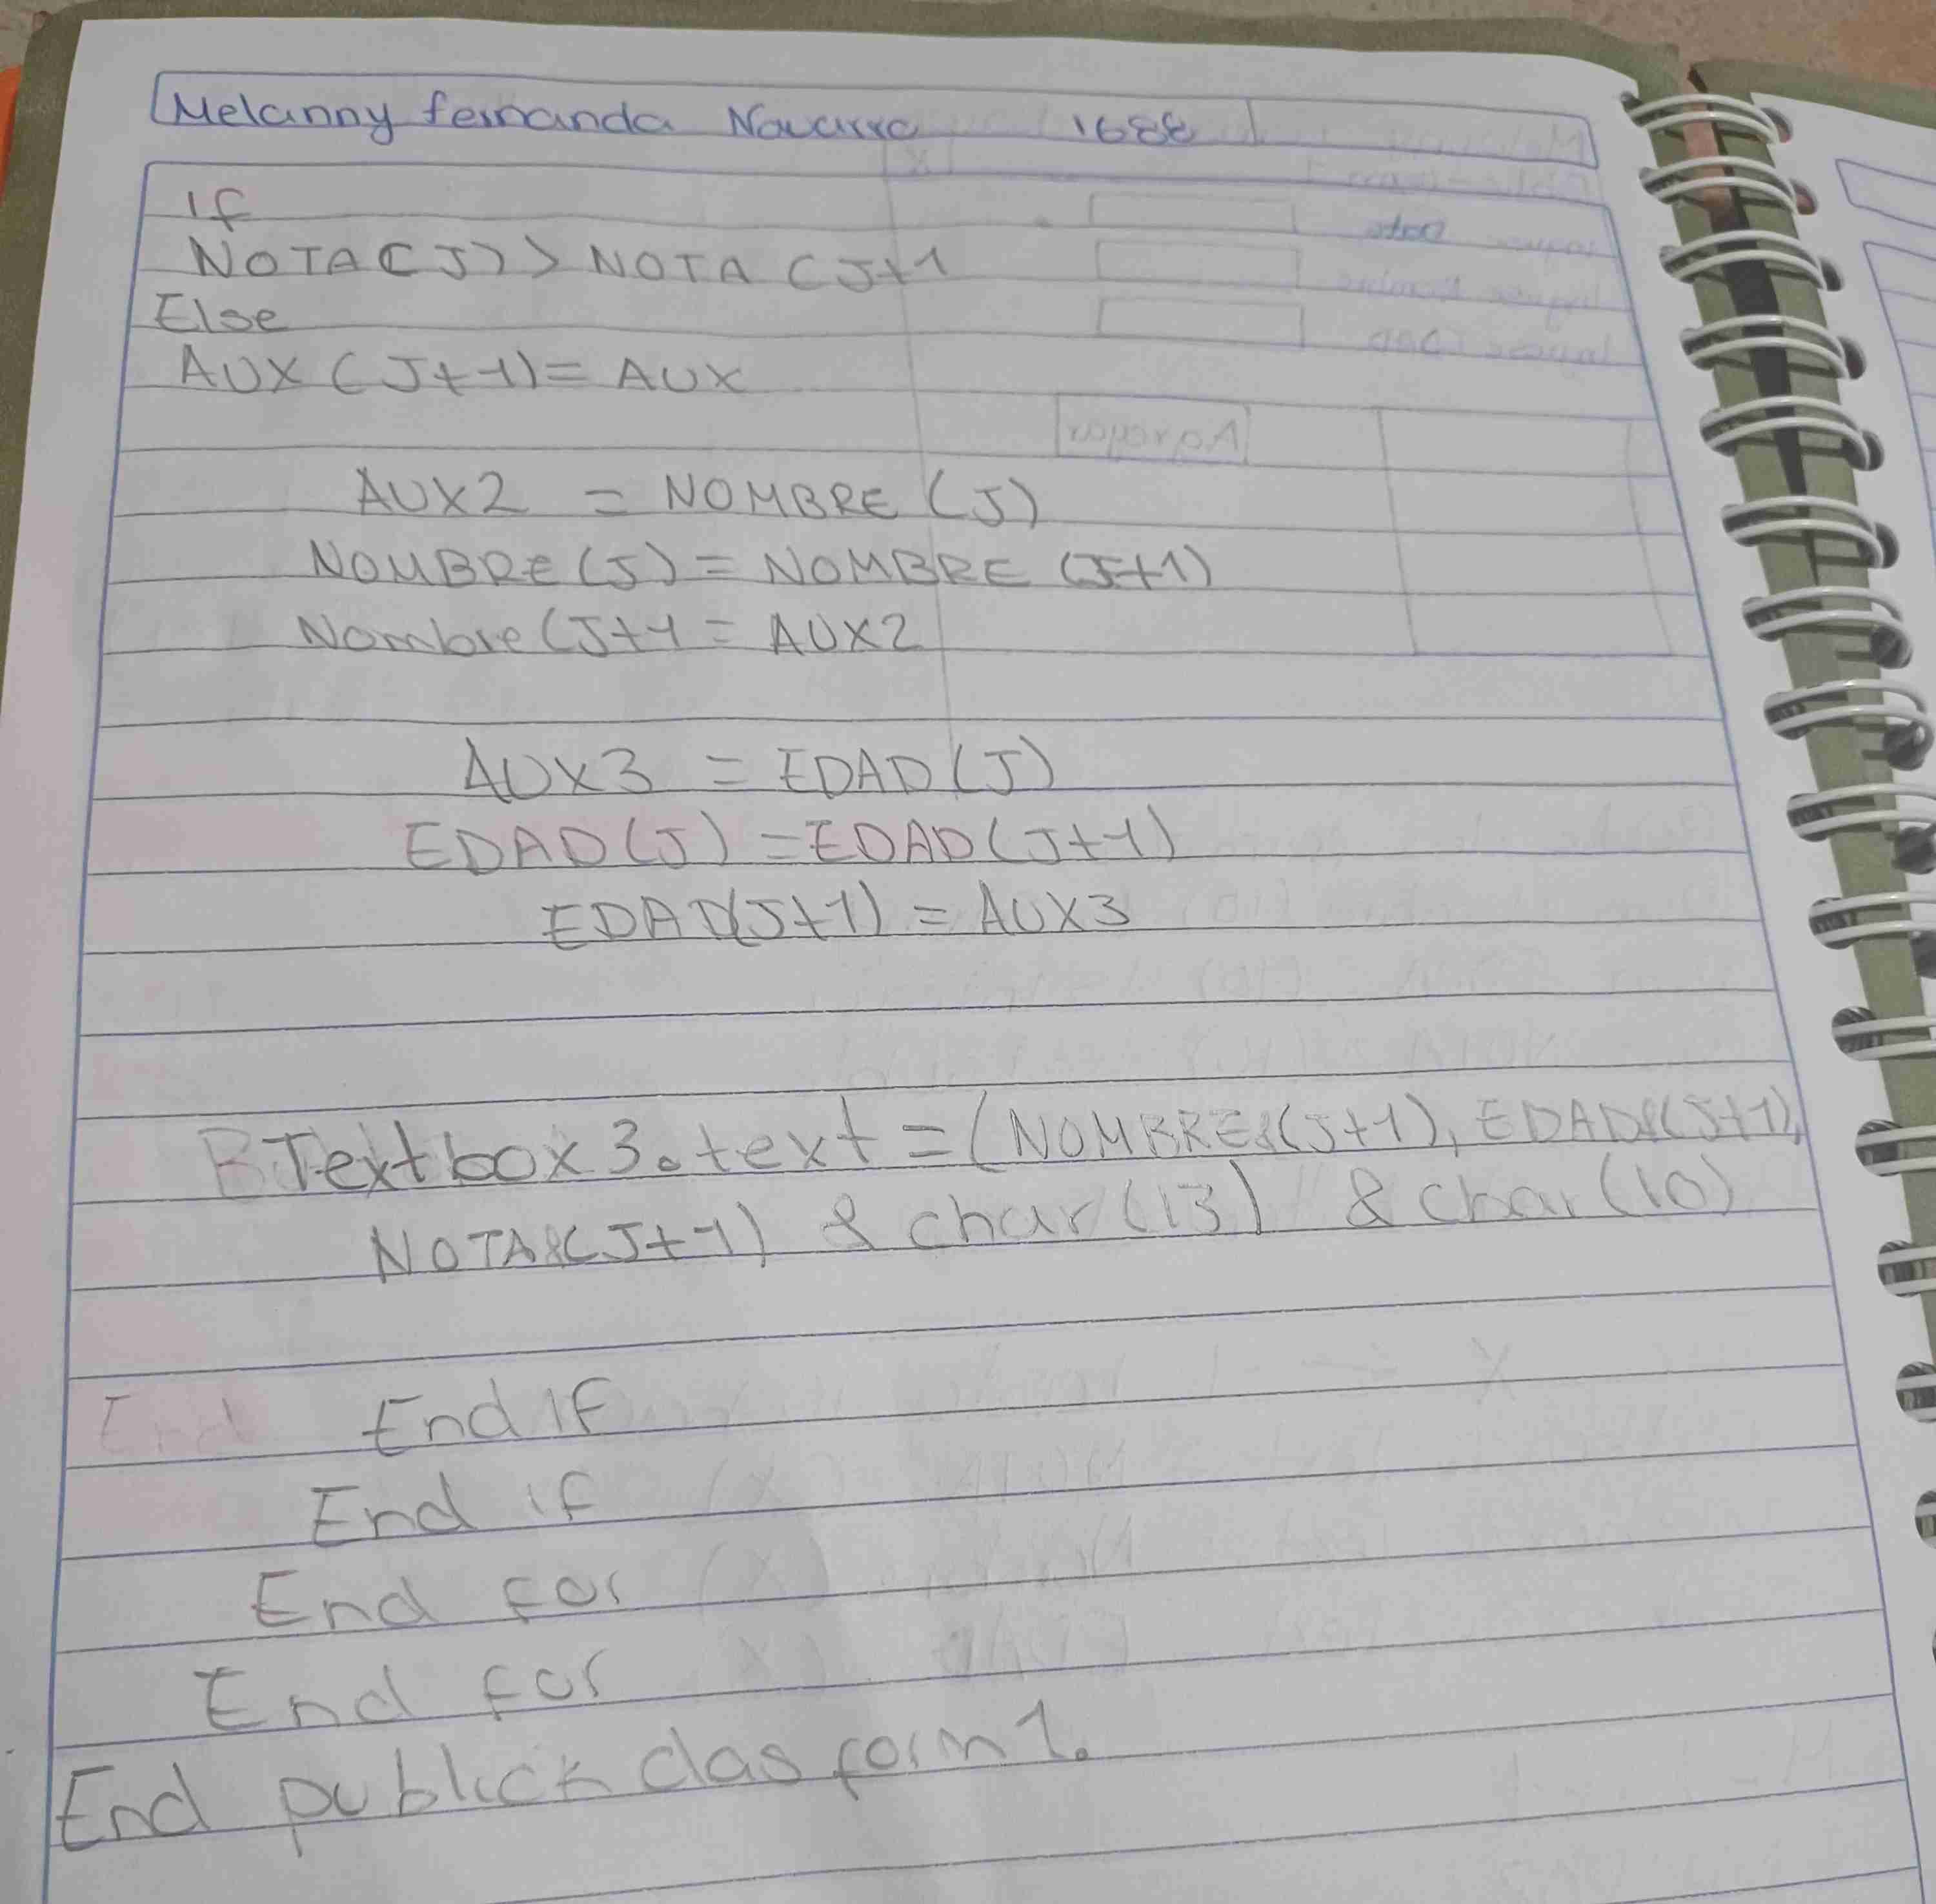 Melanny fernanda Navarro 1688
If
NOTA(J)> NOTA (J+1
Else
AUX (J+1)= AUX
AUX2 = NOMBRE (J)
NOMBRE(J) = NOMBRE (J+1)
Nombre(J+1 = AUX2
AUX3 = EDAD(J)
EDAD(J) =EDAD(J+1)
EDAD(J+1) = AUX3
Textbox3.text =(NOMBRE&(J+1), EDAD&(J+1),
NOTA&(J+1) & char(13) & char(10)
End If
End if
End for
End for
End publick clas form1.